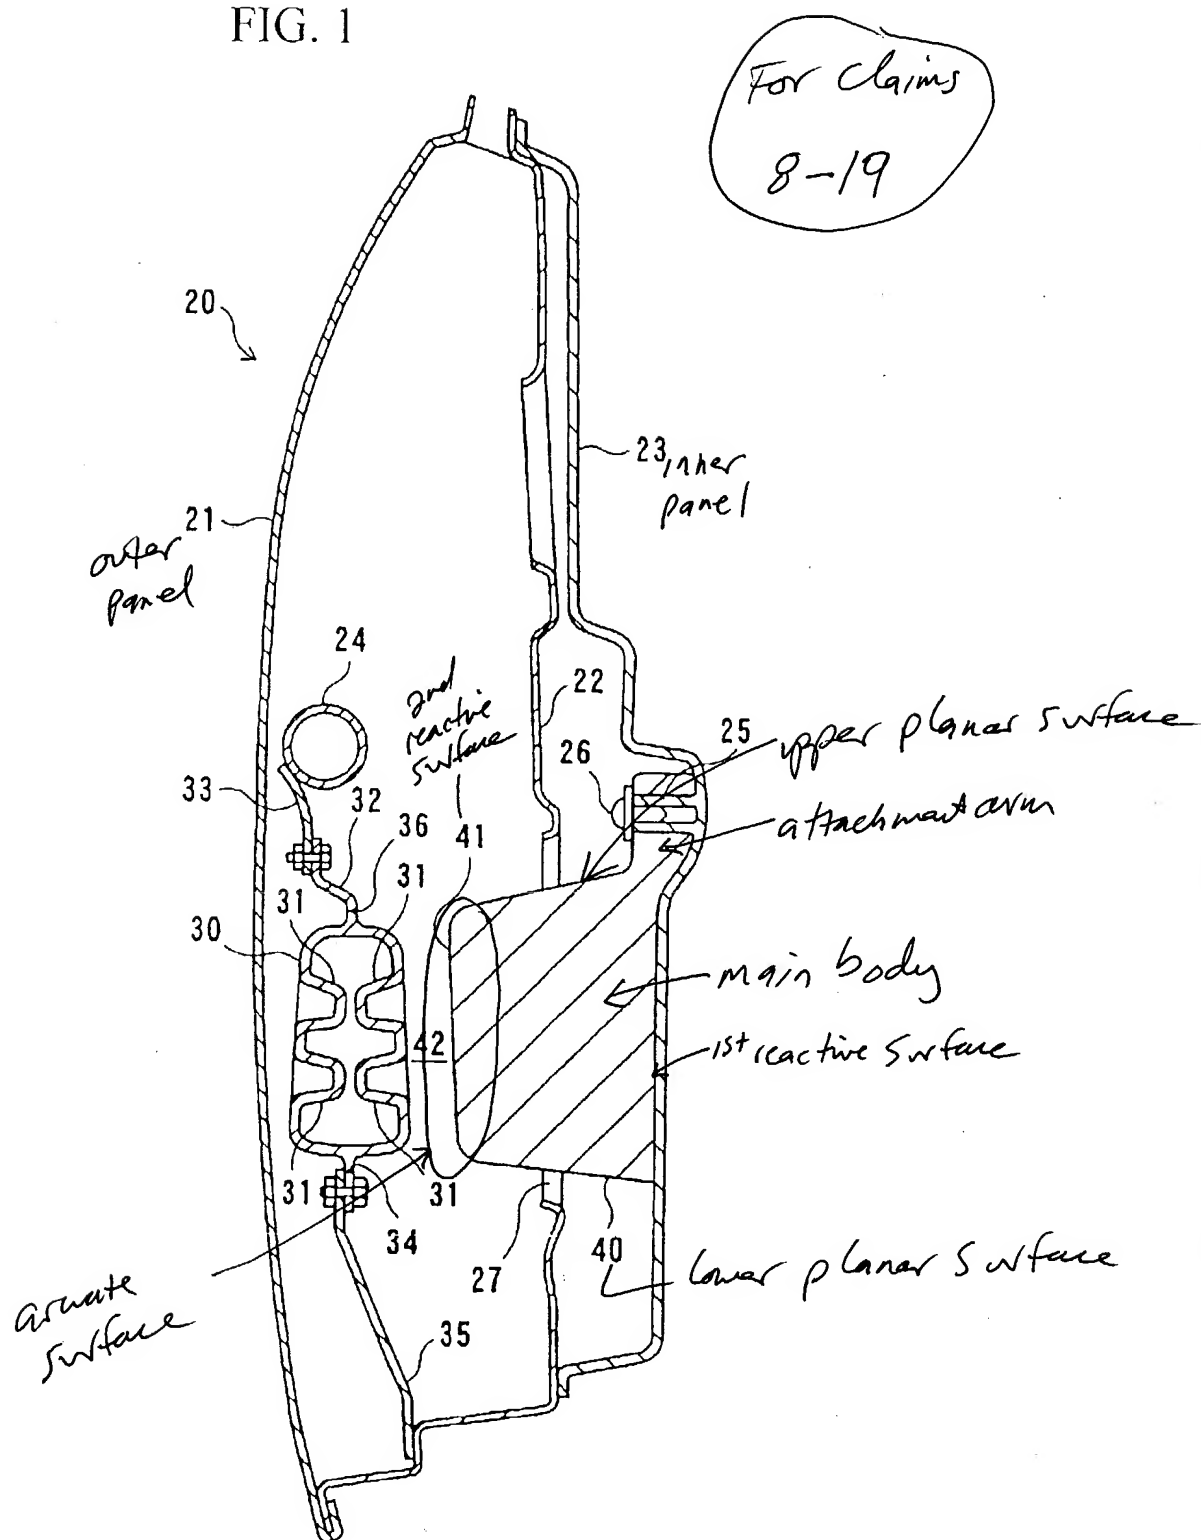 FIG. 1
For Claims
8-19
20
23 inner
panel
21
outer
panel
24
2nd
reactive
surface
22
25
upper planar surface
26
33
32
36
41
attachment arm
31
31
30
main body
42
1st reactive surface
31
31
34
27
40
lower planar surface
arcuate
surface
35